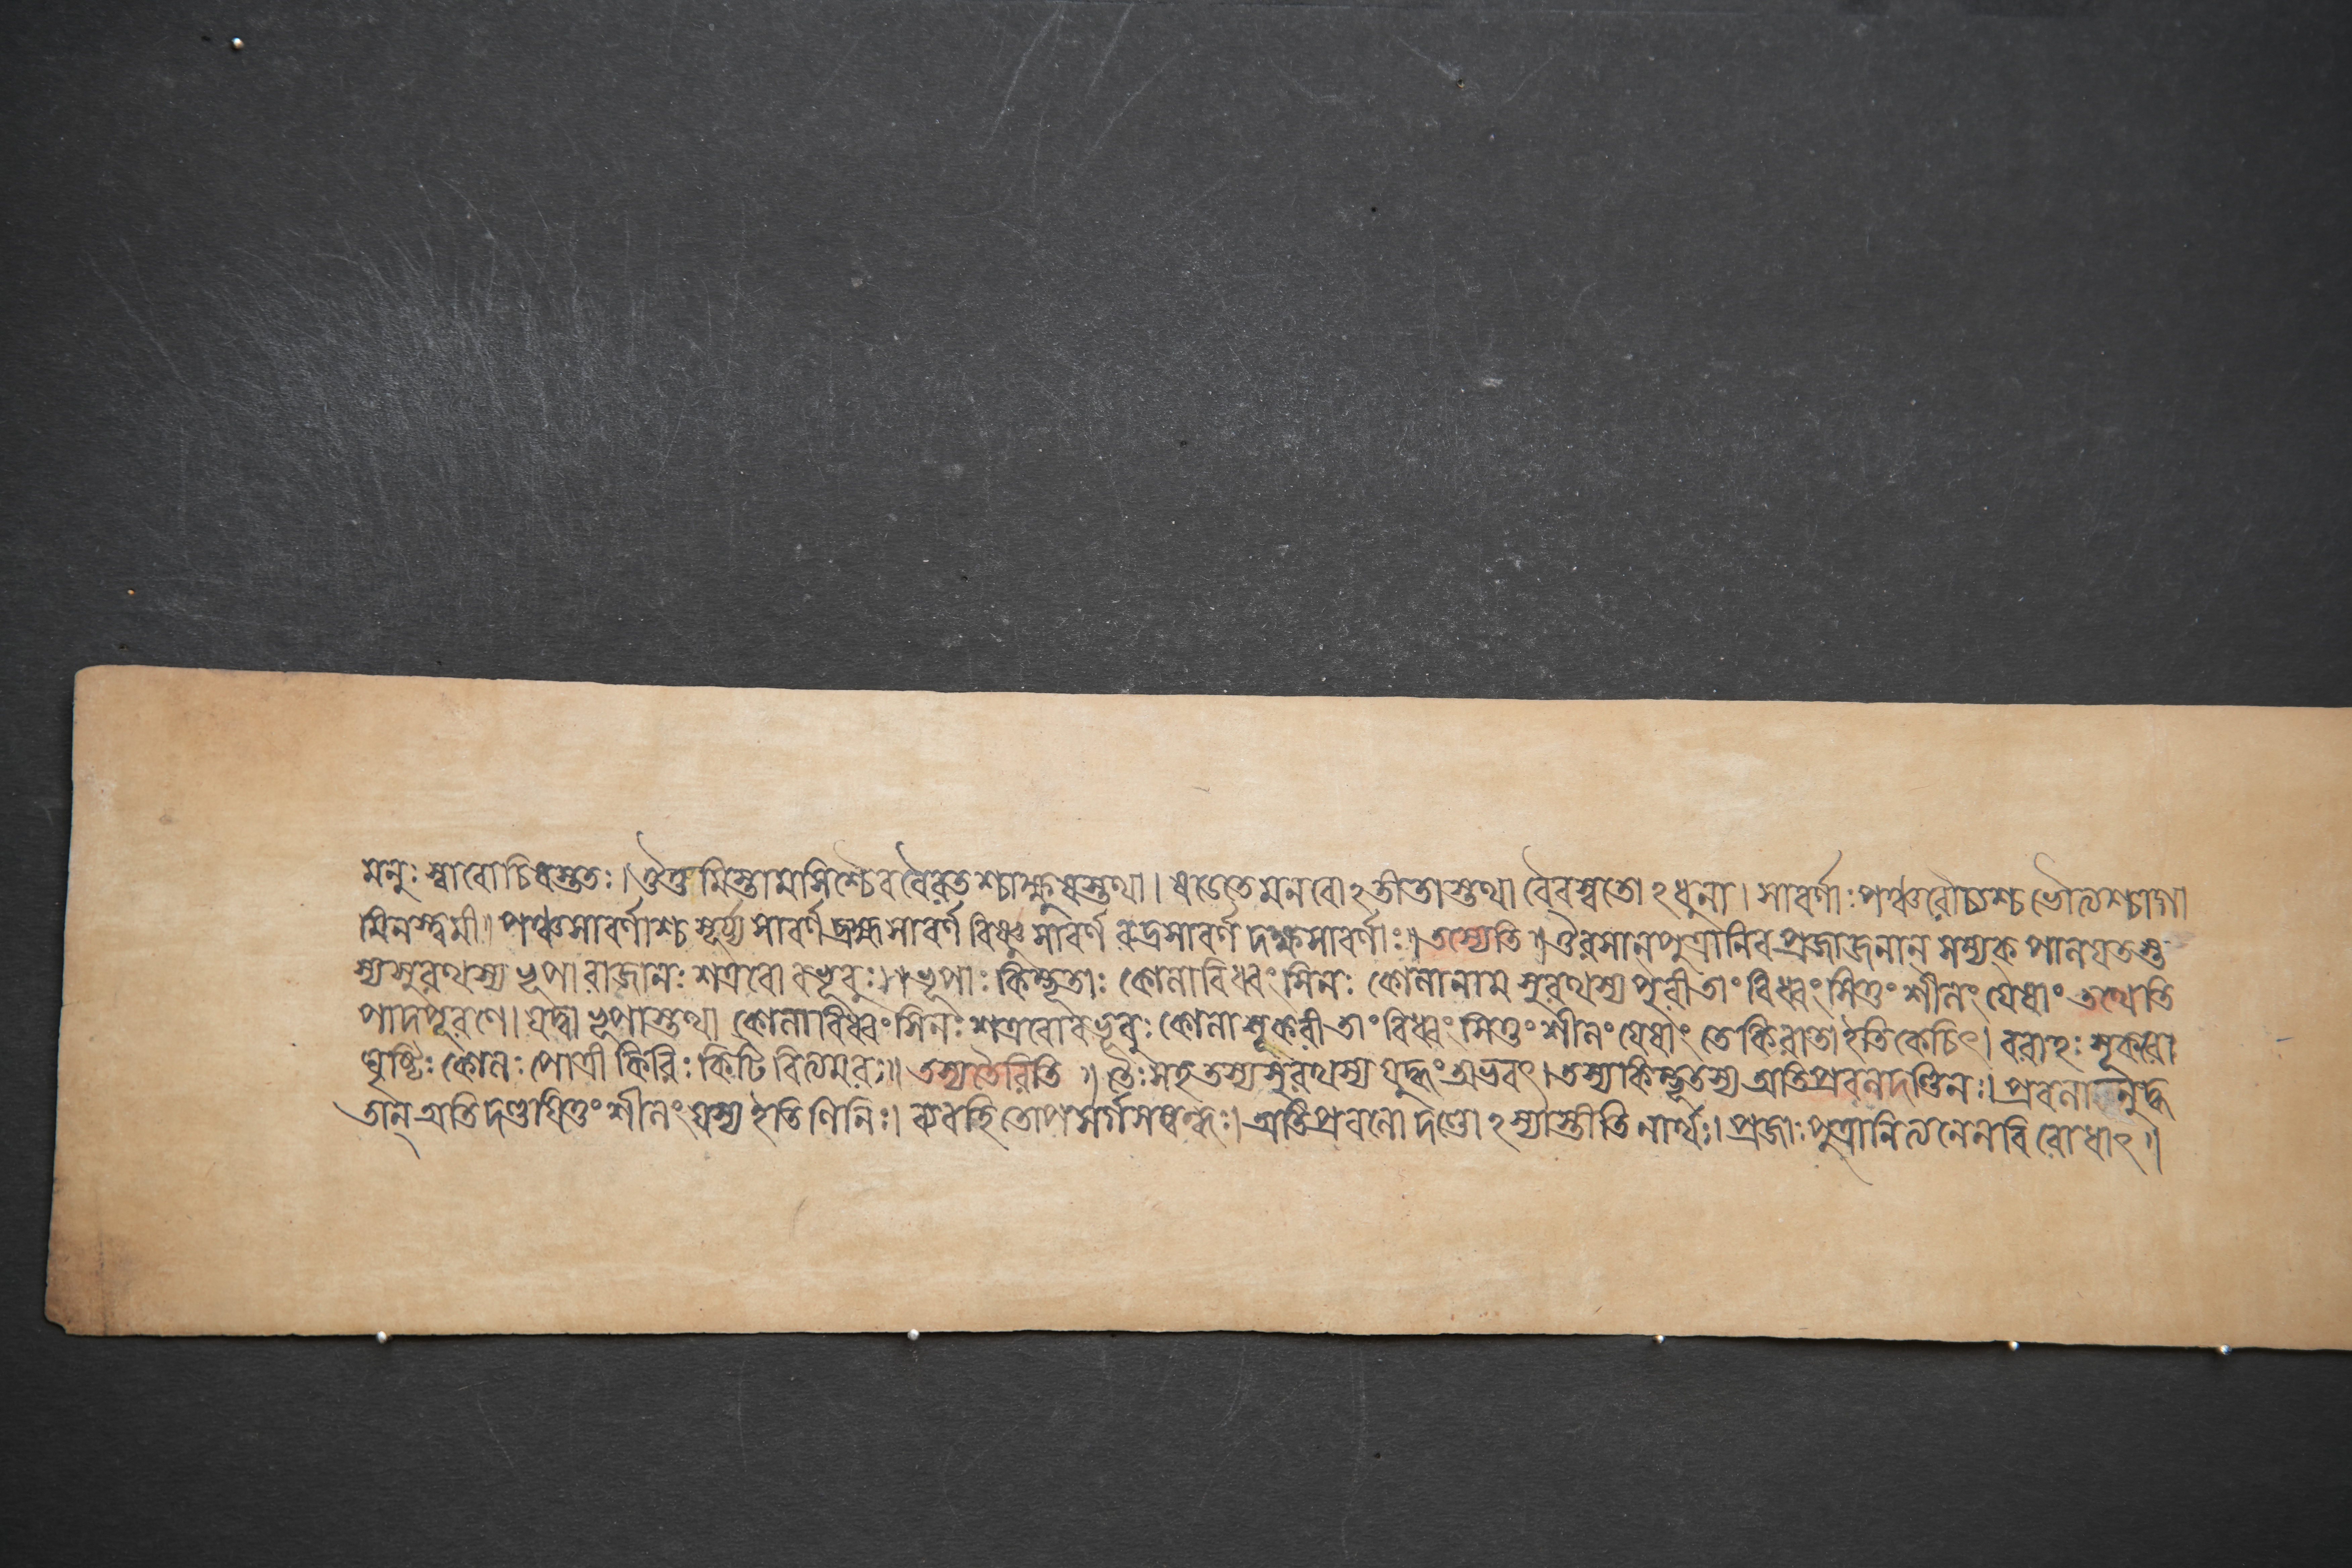 মনুঃ স্বাবোচিষস্তুতঃ। ঔত্তমিস্তামসিশ্চৈব বৈরতশ্চাক্ষুষস্তথা। ষডেতে মনবোঽতীতাস্তথা বৈবস্বতোঽধুনা। সাবর্ণাঃ পঞ্চ রৌচ্যশ্চ ভৌত্যশ্চাগা
মিনস্ত্বমী॥ পঞ্চসাবর্ণাশ্চ সূর্য্য সাবর্ণ ব্রহ্ম সাবর্ণ বিষ্ণু সাবর্ণ রুদ্রসাবর্ণ দক্ষসাবর্ণাঃ॥ তস্যেতি॥ ঔরসান্ পুত্রানিব প্রজাজনান্ সম্যক্ পালয়তস্ত
স্য সুরথস্য ভূপা রাজানঃ শত্রবো বভূবুঃ॥ ভূপাঃ কিম্ভূতাঃ কোলাবিধ্বংসিনঃ কোলানাম সুরথস্য পুরী তাং বিধ্বংসিতুং শীলং যেষাং তথেতি
পাদপূরণে। যদ্বা ভূপাস্তথা কোলাবিধ্বংসিনঃ শত্রবো বভূবুঃ কোলা শূকরী তাং বিধ্বংসিতুং শীলং যেষাং তে কিরাতা ইতি কেচিৎ। বরাহঃ শূকরো
ঘৃষ্টিঃ কোলঃ পোত্রী কিরিঃ কিটি বিত্যমরঃ॥ তস্যতৈরিতি॥ তৈঃ সহ তস্য সুরথস্য যুদ্ধং অভবৎ। তস্য কিম্ভূতস্য অতিপ্রবলদণ্ডিনঃ। প্রবলা নুদ্ধ
তান্ অতি দণ্ডযিতুং শীলং যস্য ইতি ণিনিঃ। ব্যবহিতোপসর্গসম্বন্ধঃ। অতিপ্রবলো দণ্ডোঽস্যাস্তীতি নার্থঃ। প্রজাঃ পুত্রানিত্যনেন বিরোধাৎ॥